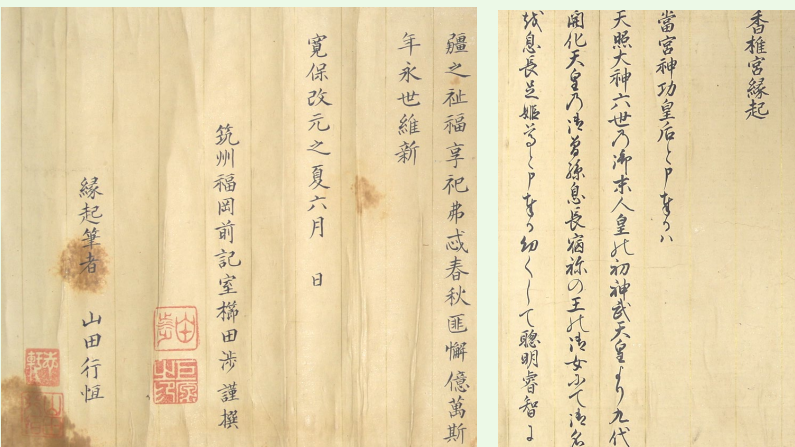 香椎宮縁起
當宮神功皇后と申奉るハ
天照大神六世乃御末人皇の初神武天皇より九代
開化天皇乃御曽孫息長宿祢の王の御女にて御名
越息長足姫尊と申奉る幼くして聰明睿智に
疆之祉福享祀弗忒春秋匪懈億萬斯
年永世維新
寛保改元之夏六月 日
筑州福岡前記室櫛田渉謹撰
縁起筆者 山田行恒